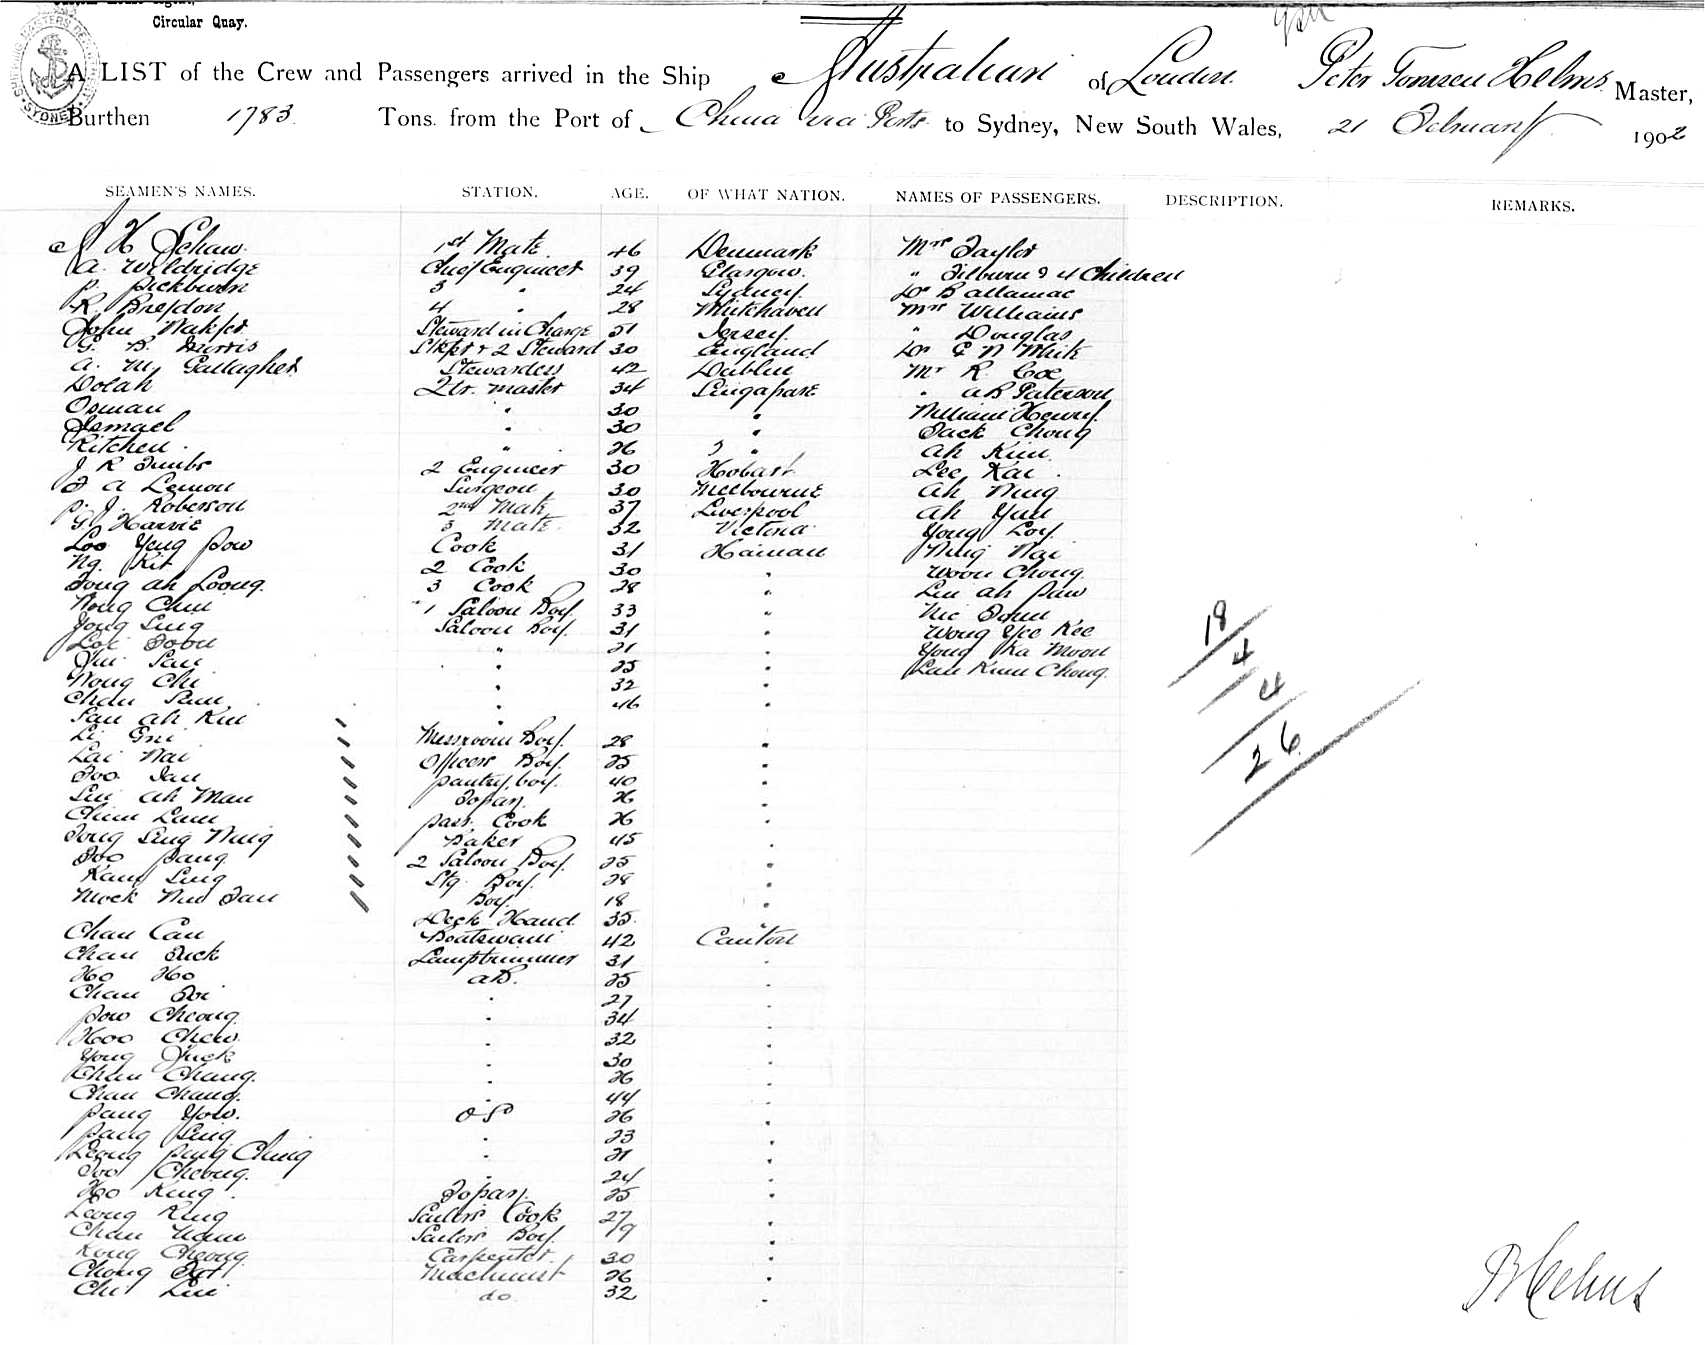 Circular Quay.
A LIST of the Crew and Passengers arrived in the Ship Australian of London Peter Tomsen Helms Master,
Burthen 1783 Tons. from the Port of China via Ports to Sydney, New South Wales, 21 February 1902
SEAMEN'S NAMES. STATION. AGE. OF WHAT NATION. NAMES OF PASSENGERS. DESCRIPTION. REMARKS.
A H Schaw 1st Mate 46 Denmark Mrs Taylor
A. Weldridge Chief Engineer 39 Glasgow. " Tilburn & 4 Children
P. Pickburn 3 " 24 Sydney Dr Ballamac
R. Breydon 4 " 28 Whitehaven Mrs Williams
John Walker Steward in Charge 51 Jersey " Douglas
G. B. Morris Stkpr & 2 Steward 30 England Dr G N Meik
A. M. Gallagher Stewardess 42 Dublin Mr R. Coe
Dolah Qtr. Master 34 Singapore " A B Paterson
Osman " 30 " William Henry
Ismael " 30 " Jack Chong
Kitchen " 26 " Ah Kim
J. R. 2 Engineer 30 Hobart Lee Kai
A Lemon Surgeon 30 Melbourne Ah Ning
P. J. Roberson 2nd Mate 37 Liverpool Ah Yun
G. Harvie 3 Mate 32 Victoria Yong Loy
Loo Yeng Pow Cook 31 Hainan Ning Nai
Ng. Kit 2 Cook 30 " Woon Chong
Tong Ah Loong 3 Cook 28 " Lin Ah Paw
Wong Chin 1 Saloon Boy 33 " Nic
Yong Ling Saloon Boy. 31 " Wong Yee Kee
Loi Toon " 21 " Yong Ka Moon
Sau " 25 " Lau Kum Chong
Wong Chi " 32 "
Chan Sam " 46 "
Ah Kin "
Li Messroom Boy. 28 "
Lai Nai Officers Boy. 25 "
Too Pantry boy. 40 "
Lin Ah Man Topay. 26 "
Chim Lam pass. Cook 26 "
Tong Ling Ning Baker 45 "
Foo Pang 2 Saloon Boy. 25 "
Kam Ling Stg. Boy. 28 "
Mock Boy. 18 "
Deck Hand 35 "
Chan Can Boatswain 42 Canton
Chan Lamptrimmer 31 "
Ho Ho AB. 25 "
Chan " 27 "
Pow Cheong " 34 "
Hoo Chew " 32 "
Yong " 30 "
Chan Chang. " 26 "
Chan Chang. " 44 "
Pang Yow. OS 26 "
Pang Ping " 23 "
Leong Ping Ching " 21 "
Cheong. " 24 "
Ho King Topay. 25 "
Leong King Sailors Cook 27 "
Chan Sailors Boy. 19 "
Kong Cheong Carpenter 30 "
Chong Machinist 26 "
Chi Lui do 32 "
18
4
4
26
P Helms